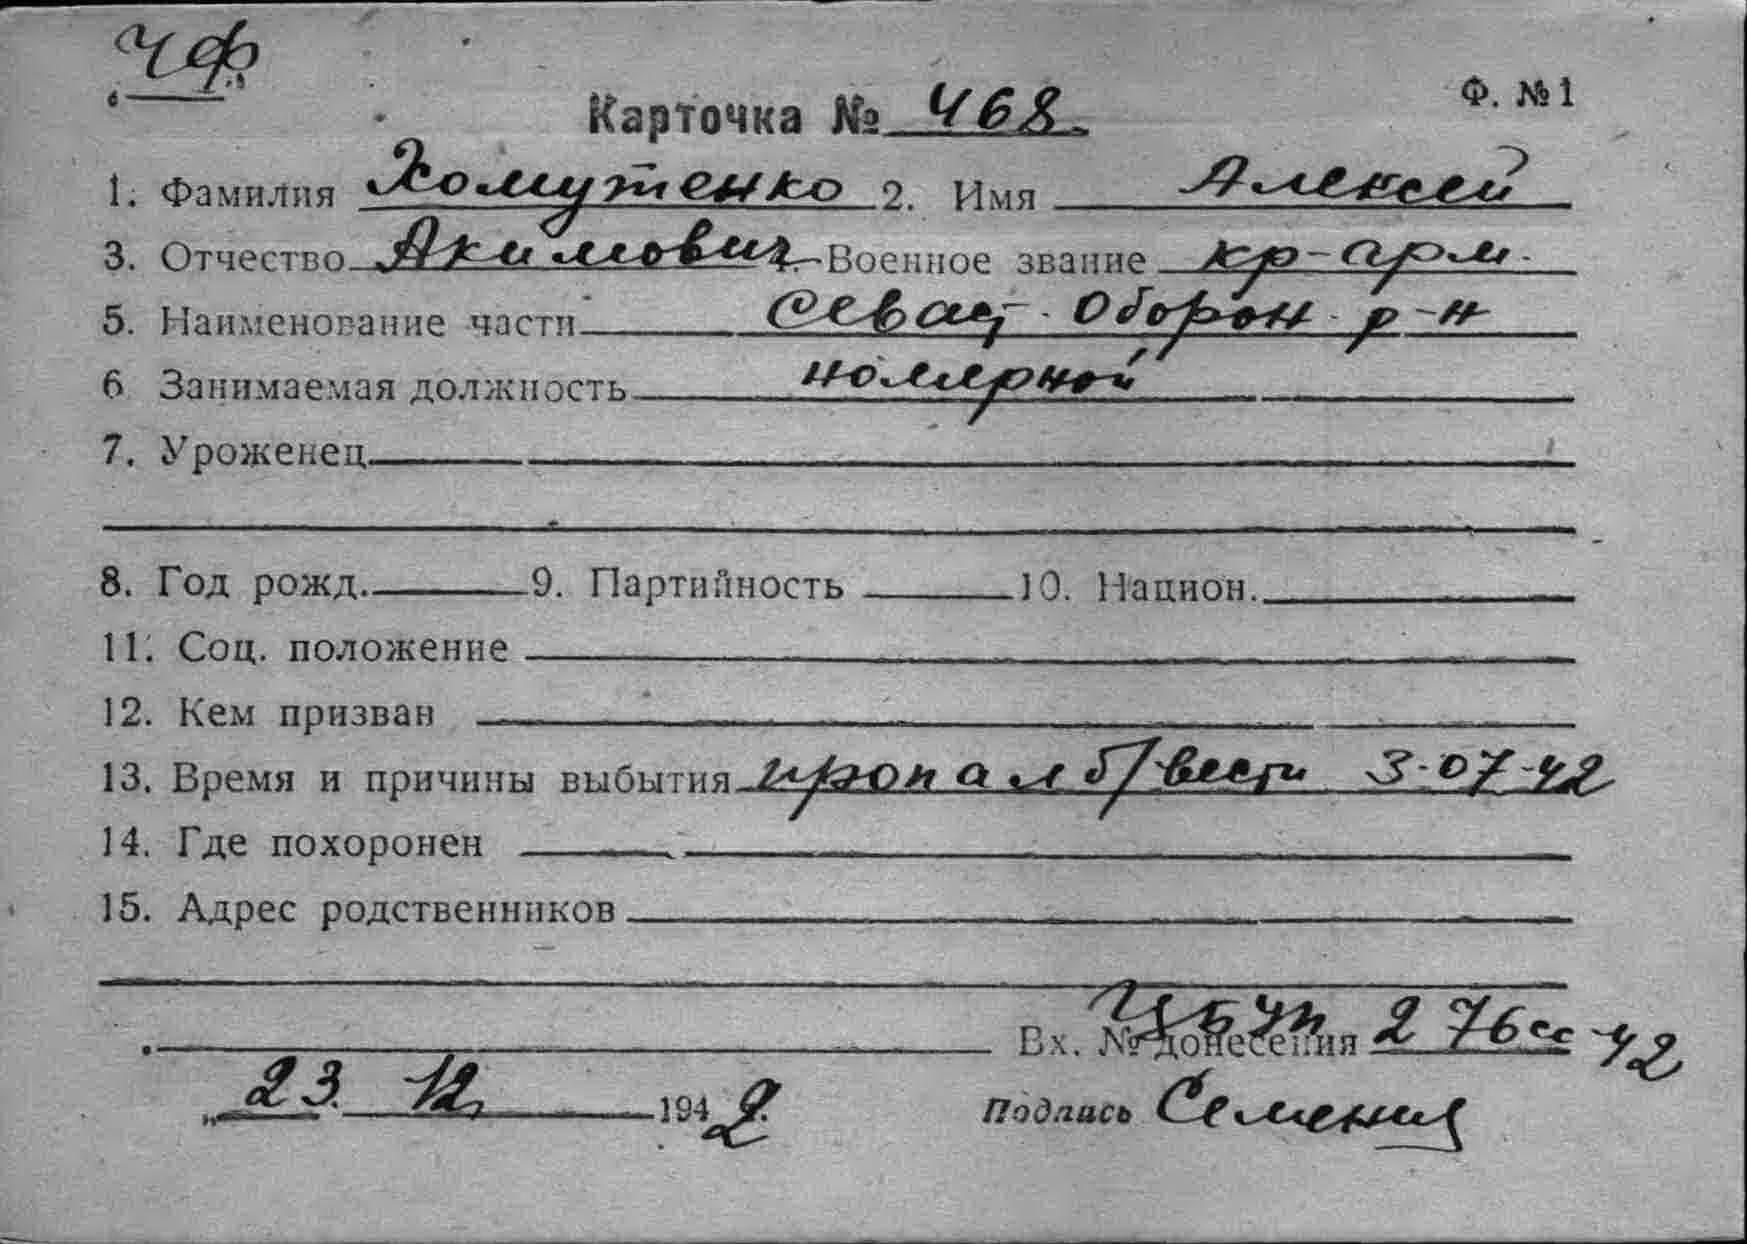 ЧФ
Ф. №1
Карточка № 468.
1. Фамилия Хомутенко 2. Имя Алексей
3. Отчество Акимович Военное звание кр-арм.
5. Наименование части Севаст. Оборон. р-н
6 Занимаемая должность номерной
7. Уроженец
8. Год рожд. 9. Партийность 10. Национ.
11. Соц. положение
12. Кем призван
13. Время и причины выбытия пропал б/вести 3-07-42
14. Где похоронен
15. Адрес родственников
Вх. № донесения 276сс-42
„23. 12 1942 Подпись